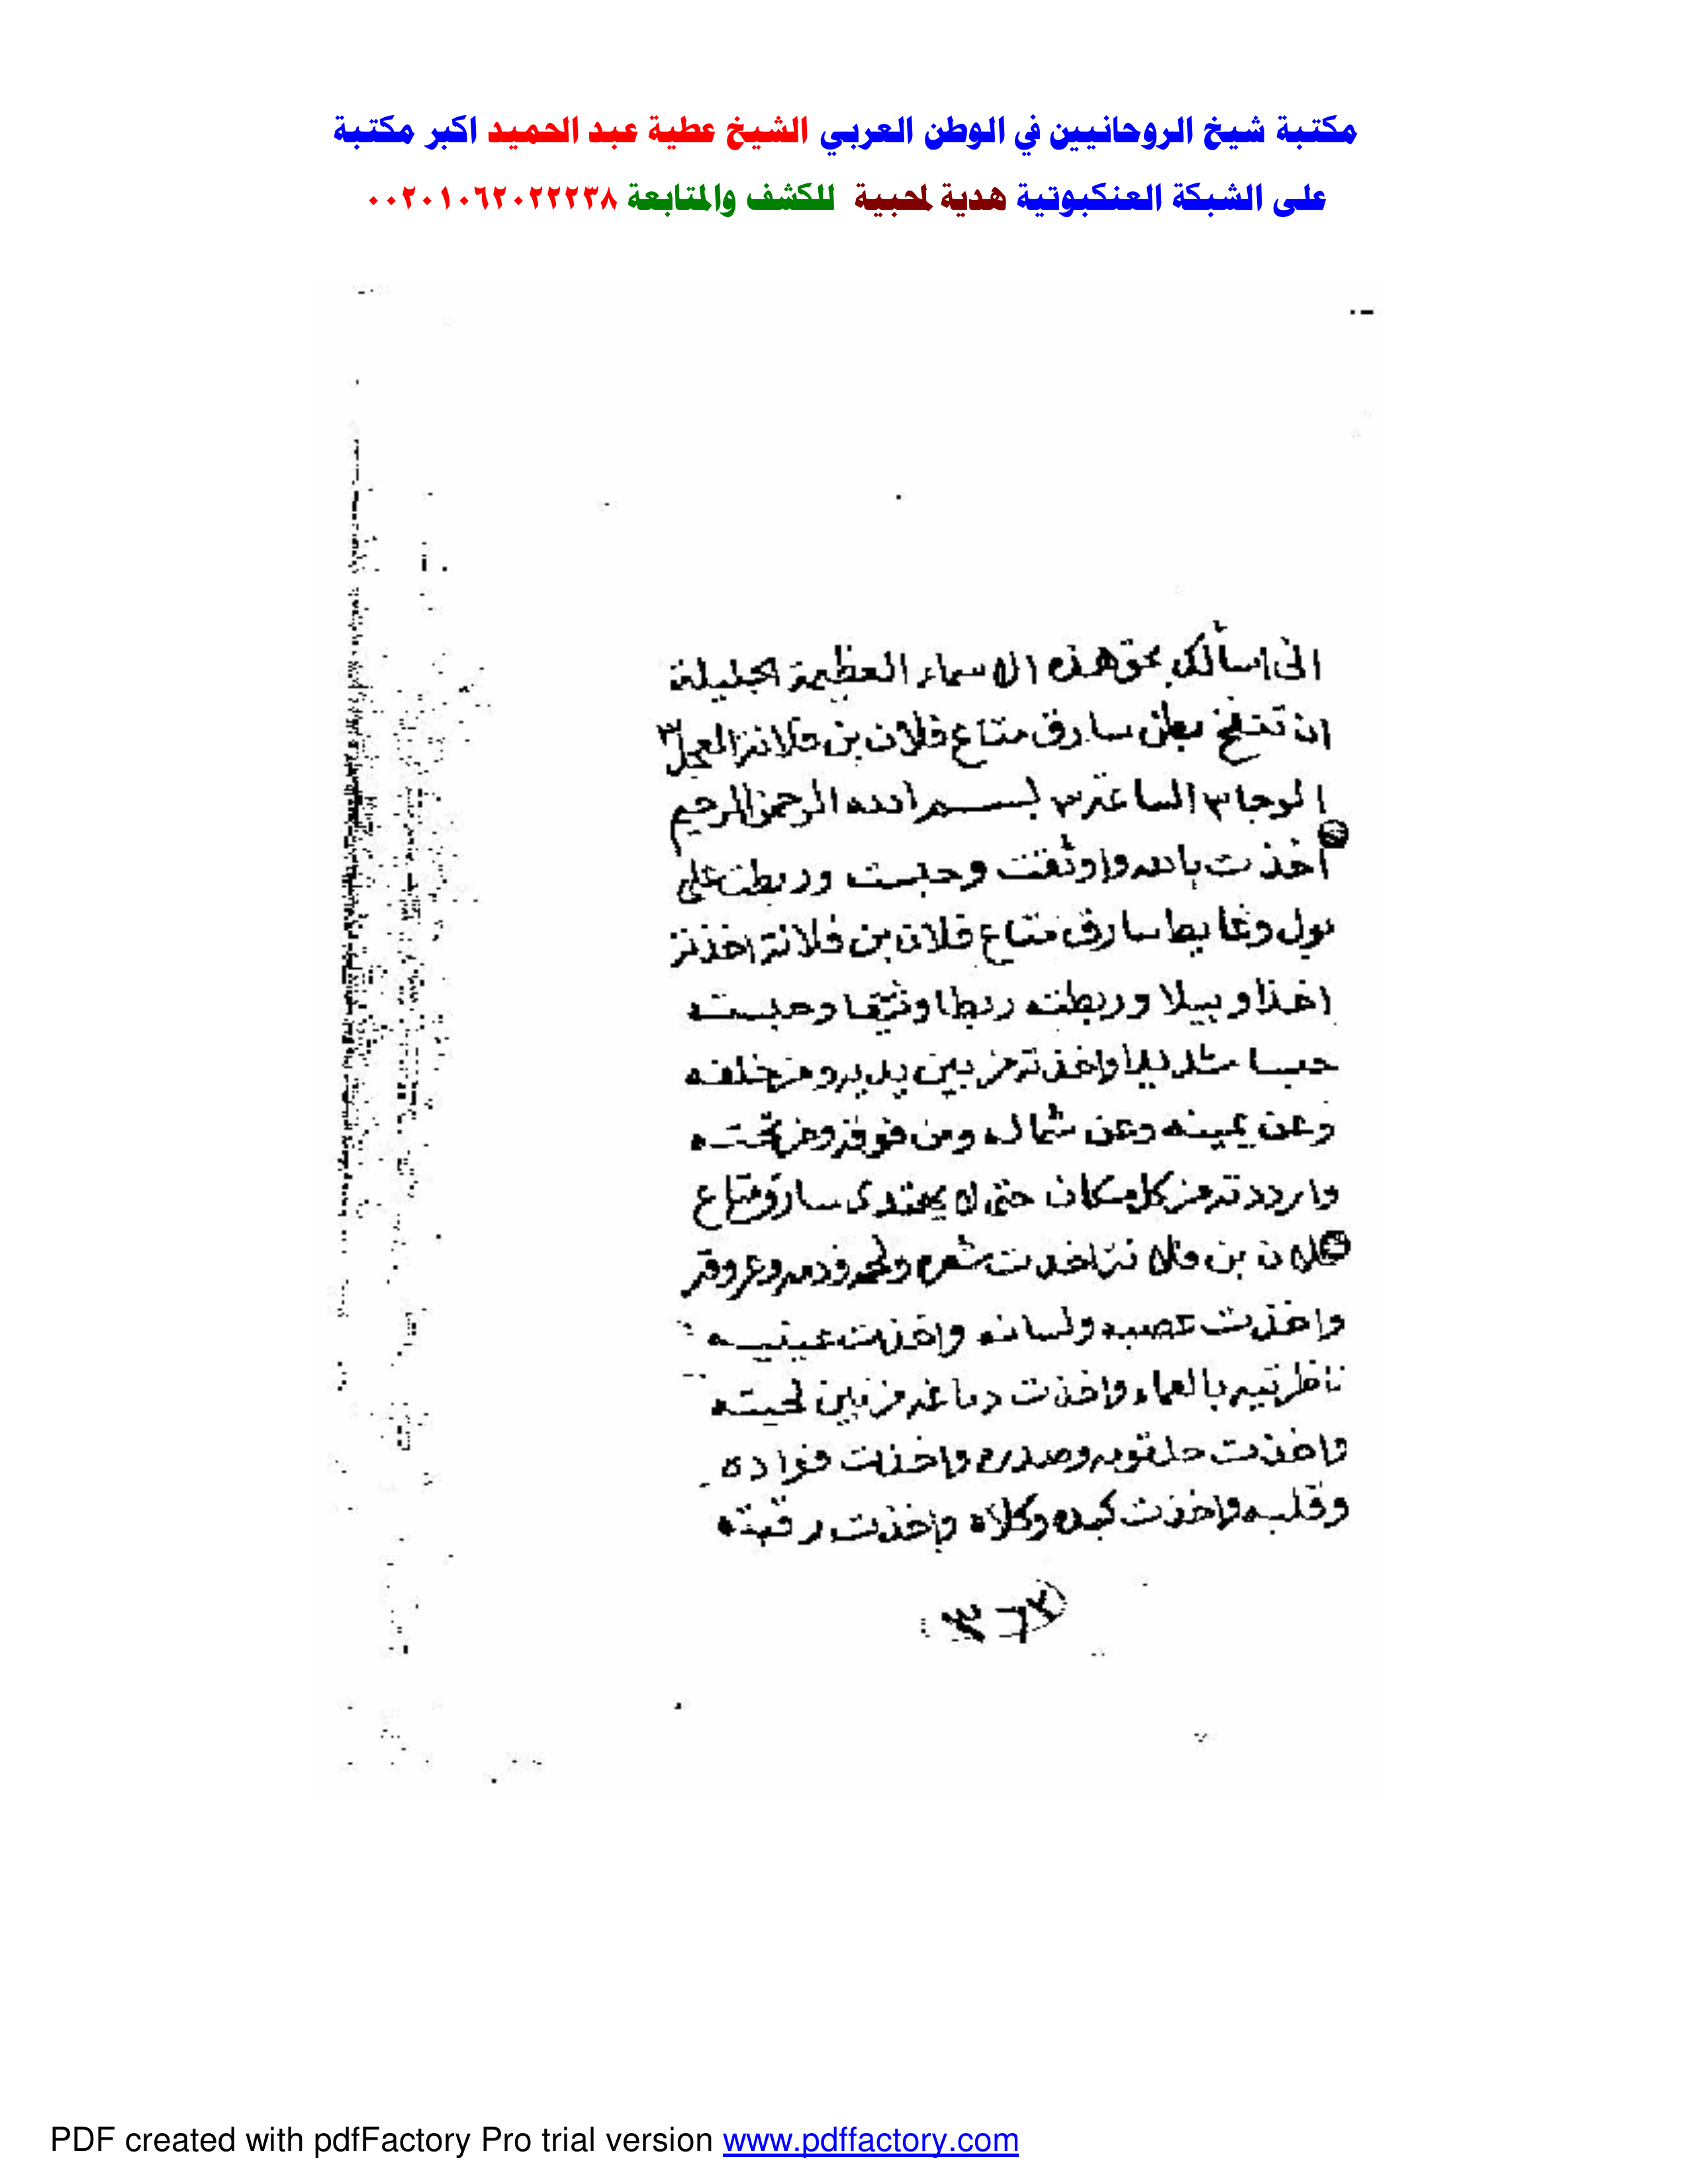 مكتبة شيخ الروحانيين في الوطن العربي الشيخ عطية عبد الحميد اكبر مكتبة
على الشبكة العنكبوتية هدية لمحبية للكشف والمتابعة ٠٠٢٠١٠٦٢٠٢٢٢٣٨
انى اسألك بحق هذه الاسماء العظيمة الجليلة
ان تنفخ بطن سارق متاع فلان بن فلانة العجل ٣
الوحا ٣ الساعة ٣ بسم الله الرحمن الرحيم
اخذت بالله واوثقت وحبست وربطت على
بول وغايط سارق متاع فلان بن فلانة اخذته
اخذا وبيلا وربطته ربطا وثيقا وحبسته
حبسا شديدا واخذته من بين يديه ومن خلفه
وعن يمينه وعن شماله ومن فوقه ومن تحته
وارددته من كل مكان حتى لا يهتدى سارق متاع
فلان بن فلانة اخذت شعره ولحمه ودمه وعروقه
واخذت عصبه ولسانه واخذت عينيه
ناظرتيه بالعماء واخذت دماغه من بين لحيته
واخذت حلقومه وصدره واخذت فؤاده
وقلبه واخذت كبده وكلاه واخذت رقبته
PDF created with pdfFactory Pro trial version www.pdffactory.com